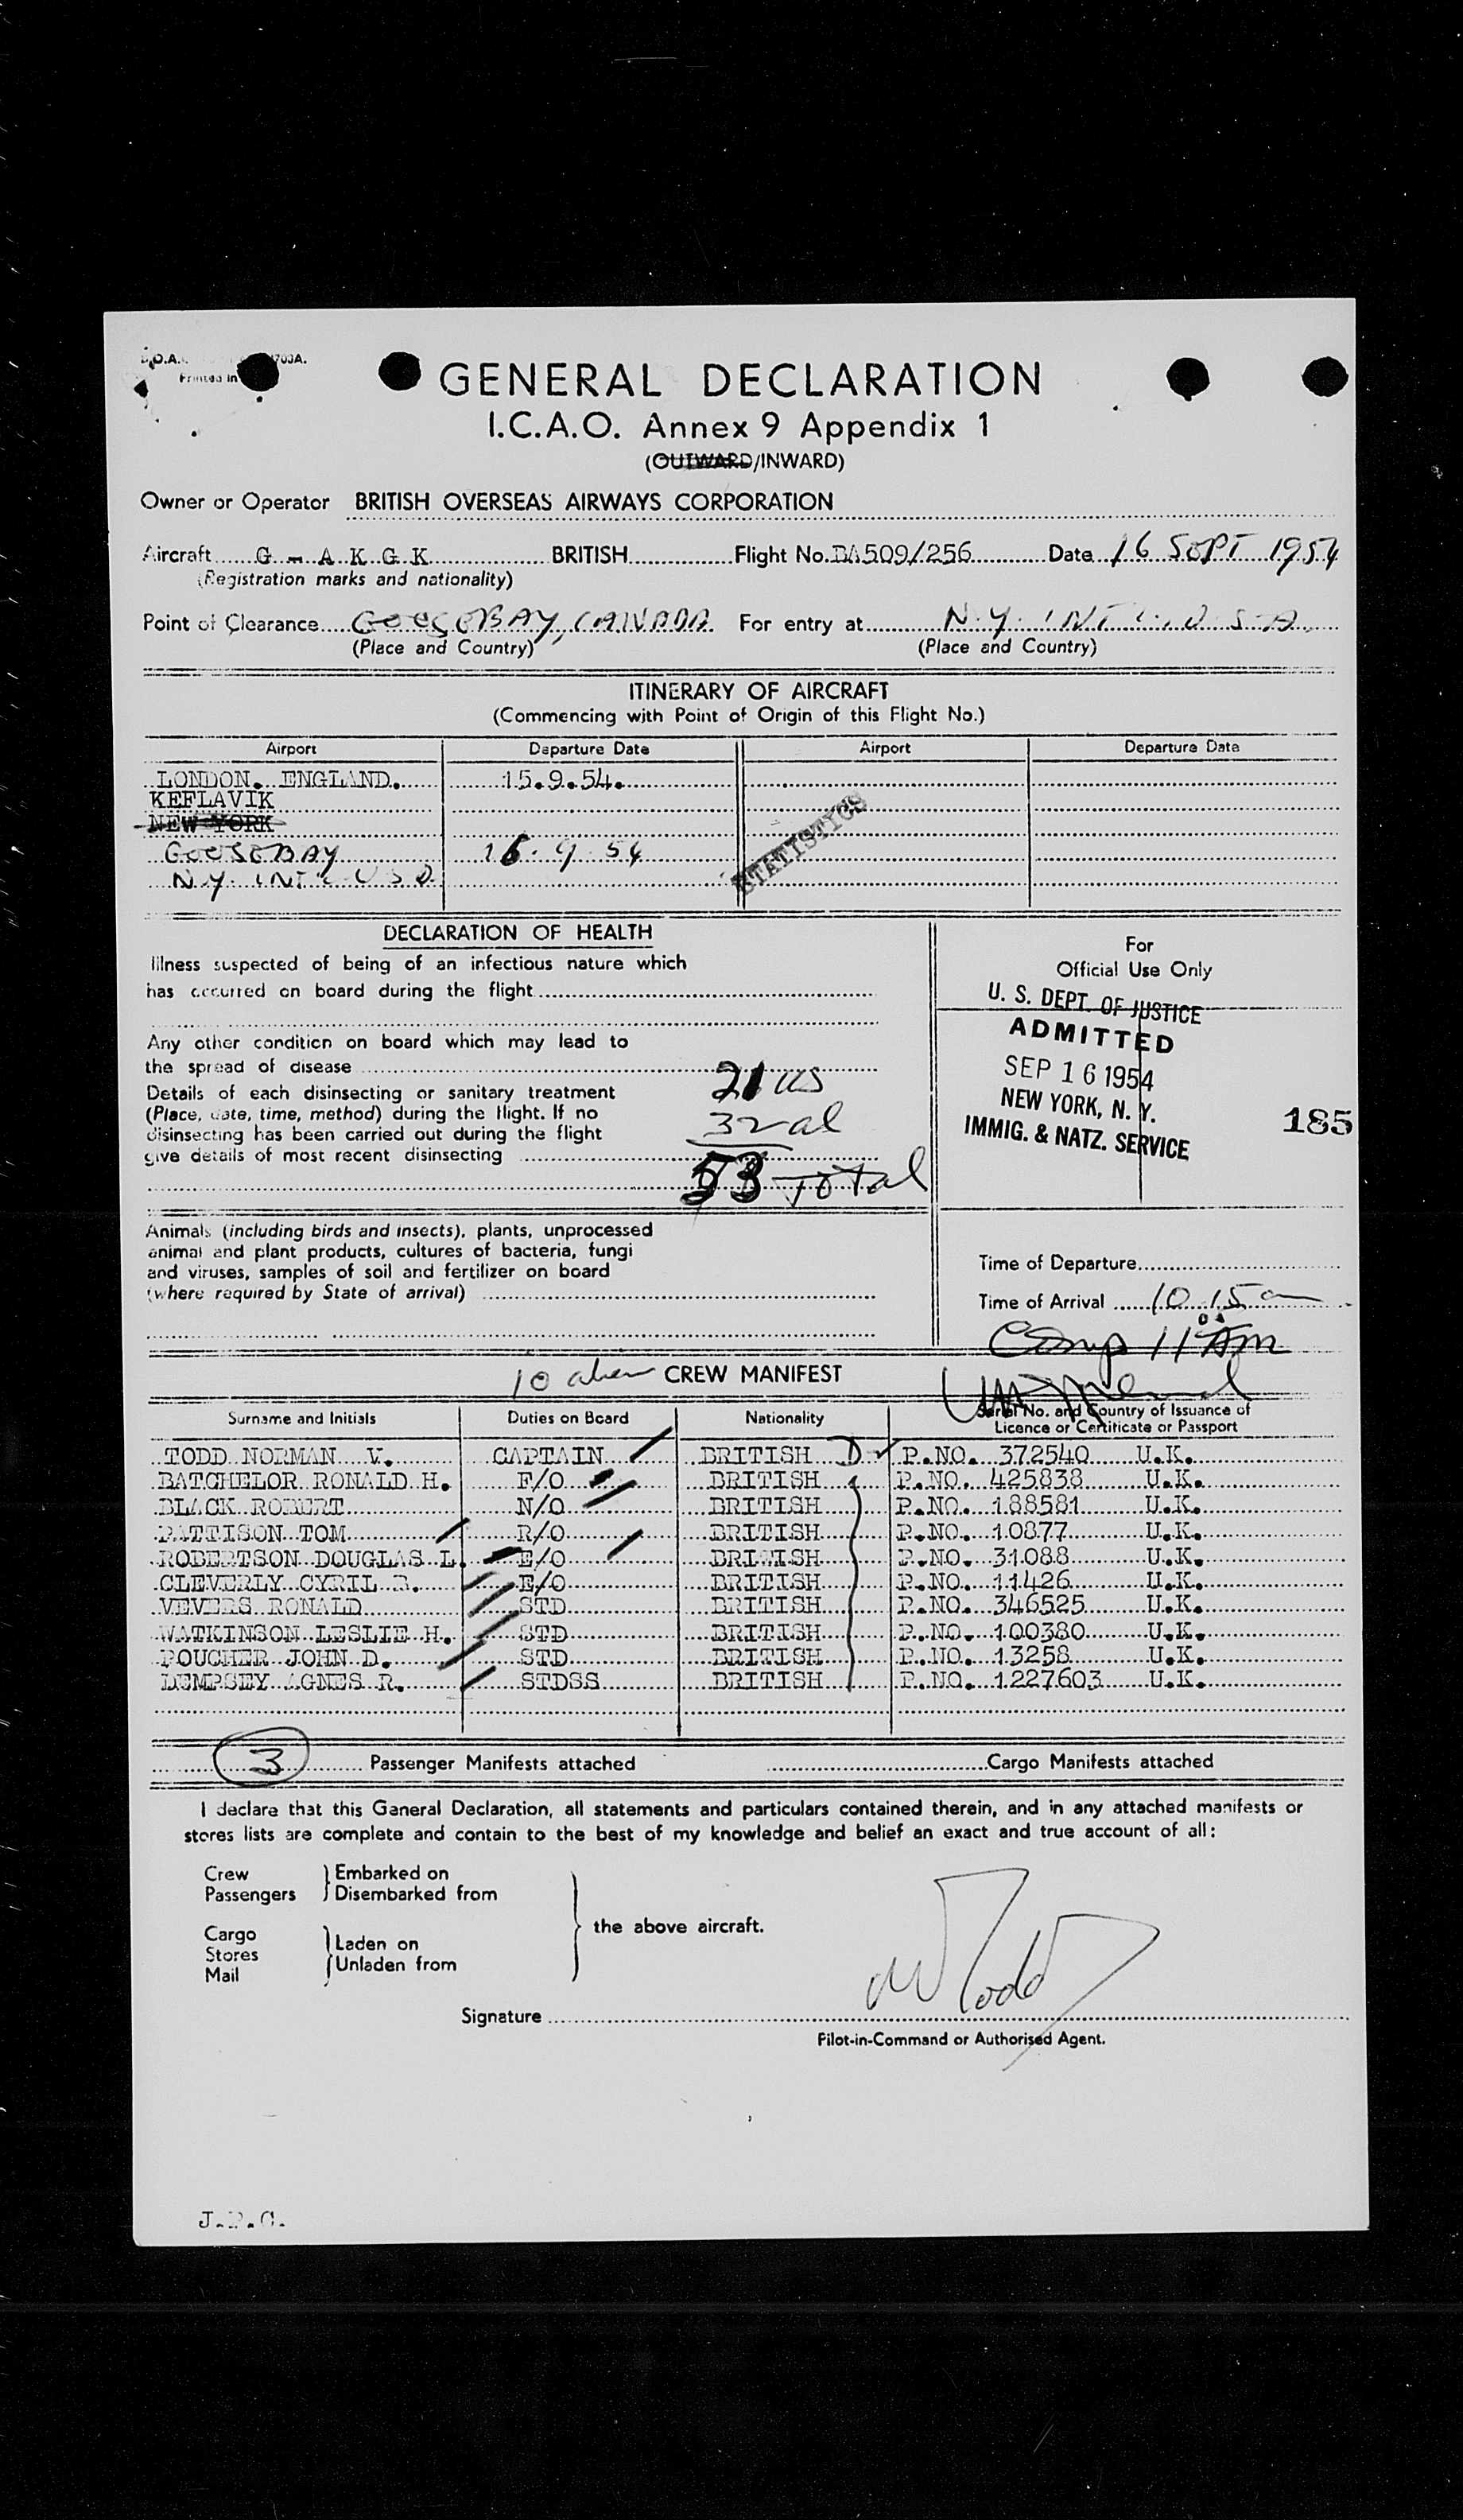 Printed in
GENERAL DECLARATION
I.C.A.O. Annex 9 Appendix 1
(OUTWARD/INWARD)
Owner or Operator BRITISH OVERSEAS AIRWAYS CORPORATION
Aircraft G - A K G K BRITISH Flight No. BA509/256 Date 16 SEPT 1954
(Registration marks and nationality)
Point of Clearance GOOSEBAY, CANADA For entry at N.Y. INT'L U.S.A.
(Place and Country) (Place and Country)
ITINERARY OF AIRCRAFT
(Commencing with Point of Origin of this Flight No.)
Airport Departure Date Airport Departure Date
LONDON. ENGLAND. 15.9.54.
KEFLAVIK
NEW YORK
GOOSEBAY 16.9.54
N.Y. INT'L U S A
STATISTICS
DECLARATION OF HEALTH
Illness suspected of being of an infectious nature which
has occurred on board during the flight
Any other condition on board which may lead to
the spread of disease
Details of each disinsecting or sanitary treatment
(Place, date, time, method) during the flight. If no
disinsecting has been carried out during the flight
give details of most recent disinsecting
21 us
32 al
53 Total
For
Official Use Only
U. S. DEPT. OF JUSTICE
ADMITTED
SEP 16 1954
NEW YORK, N. Y.
IMMIG. & NATZ. SERVICE
185
Animals (including birds and insects), plants, unprocessed
animal and plant products, cultures of bacteria, fungi
and viruses, samples of soil and fertilizer on board
(where required by State of arrival)
Time of Departure
Time of Arrival 10 15 am
Comp 11 AM
10 alien CREW MANIFEST
Surname and Initials Duties on Board Nationality Serial No. and Country of Issuance of
Licence or Certificate or Passport
TODD NORMAN V. CAPTAIN BRITISH D P.NO. 372540 U.K.
BATCHELOR RONALD H. F/O BRITISH P.NO. 425838 U.K.
BLACK ROBERT N/O BRITISH P.NO. 188581 U.K.
PATTISON TOM R/O BRITISH P.NO. 10877 U.K.
ROBERTSON DOUGLAS L. E/O BRIWISH P.NO. 31088 U.K.
CLEVERLY CYRIL R. E/O BRITISH P.NO. 11426 U.K.
VEVERS RONALD STD BRITISH P.NO. 346525 U.K.
WATKINSON LESLIE H. STD BRITISH P.NO. 100380 U.K.
POUCHER JOHN D. STD BRITISH P.NO. 13258 U.K.
DEMPSEY AGNES R. STDSS BRITISH P.NO. 1227603 U.K.
3 Passenger Manifests attached Cargo Manifests attached
I declare that this General Declaration, all statements and particulars contained therein, and in any attached manifests or
stores lists are complete and contain to the best of my knowledge and belief an exact and true account of all:
Crew Embarked on
Passengers Disembarked from
the above aircraft.
Cargo
Stores Laden on
Mail Unladen from
Signature N Todd
Pilot-in-Command or Authorised Agent.